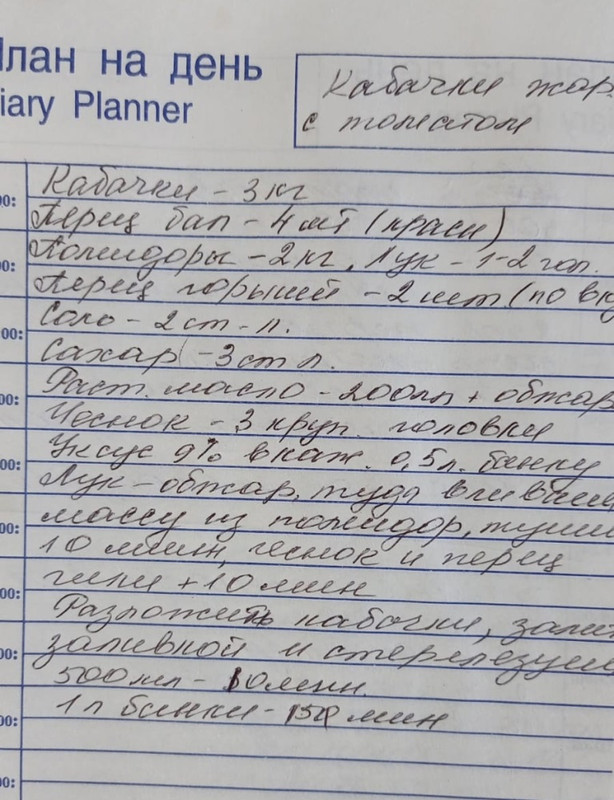 План на день
iary Planner
Кабачки жар.
с томатом
Кабачки - 3 кг
Перец бол - 4 шт (красн)
Помидоры - 2 кг, Лук - 1-2 гол.
Перец горький - 2 шт (по вку
Соль - 2 ст. л.
Сахар - 3 ст л.
Раст. масло - 200мл + обжар
Чеснок - 3 круп. головки
Уксус 9% в каж. 0,5 л. банку
Лук - обжар, туда вливаем
массу из помидор, тушим
10 мин, чеснок и перец
чили + 10 мин
Разложить кабачки, залит
заливкой и стерелезуем
500 мл - 10 мин.
1 л банки - 15 мин